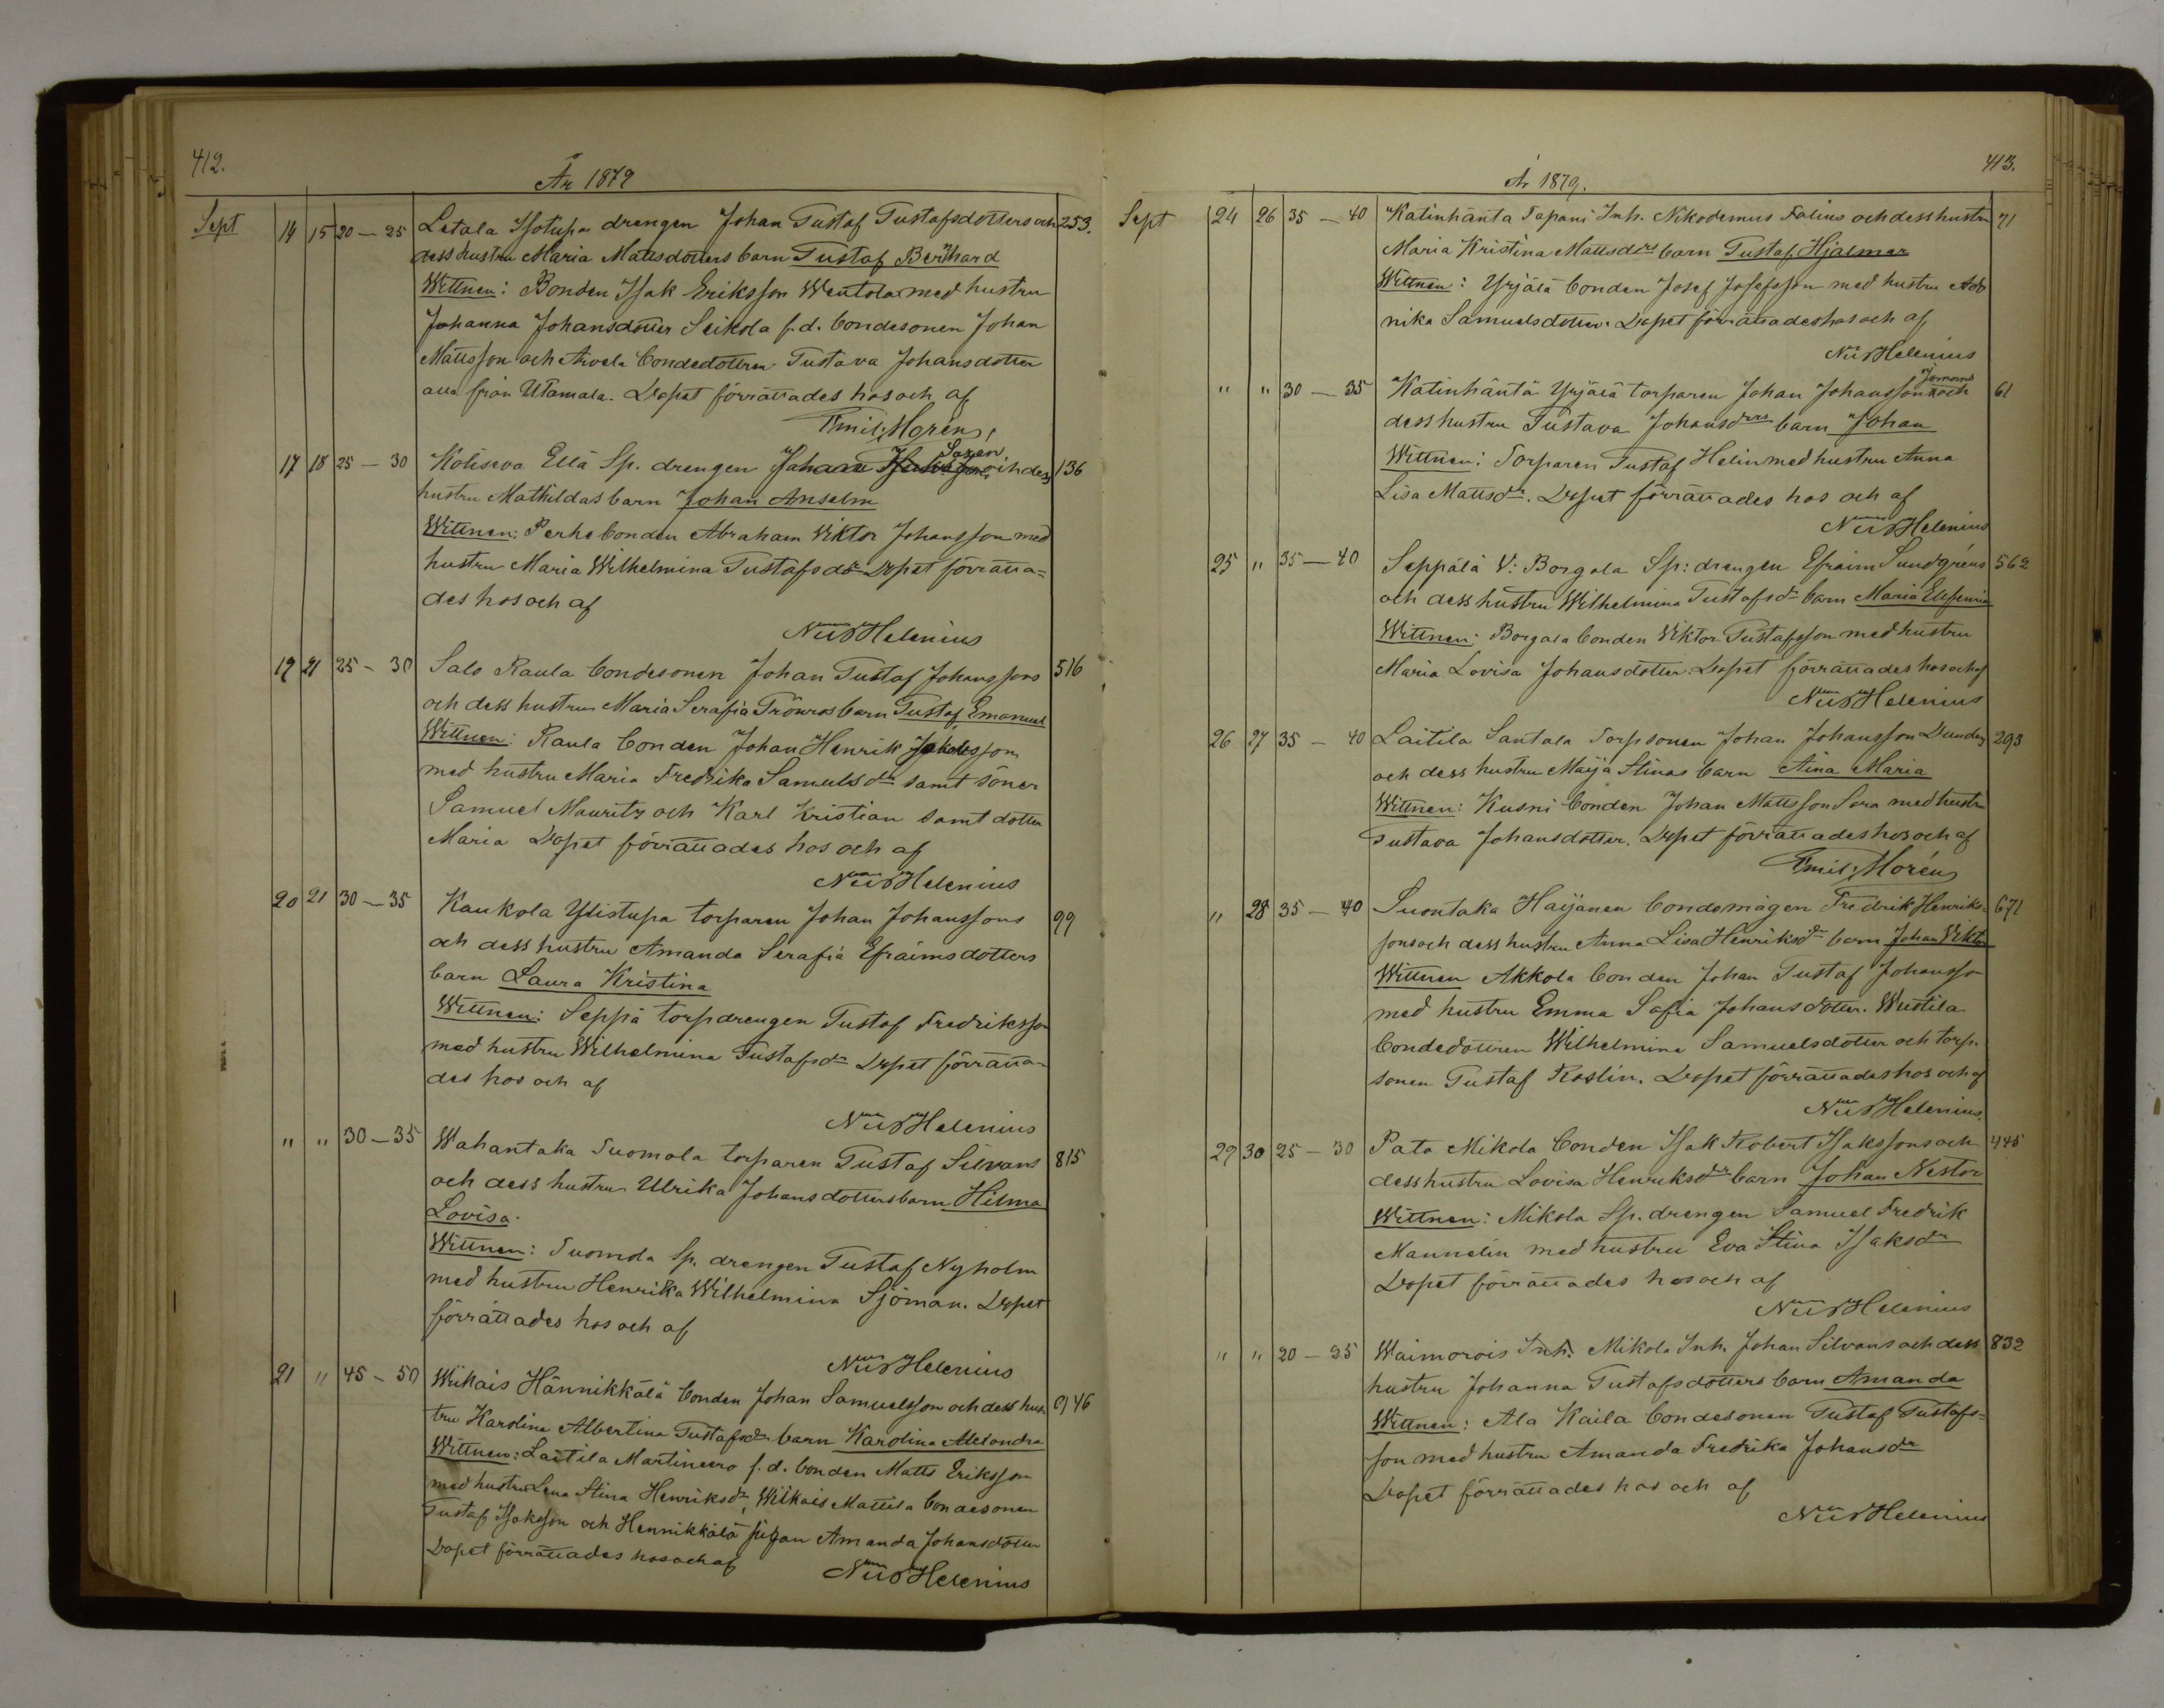 412.
År 1879
Sept 14 15 20 — 25 Letala Isotupa drengen Johan Gustaf Gustafsdotters och 253.
dess hustru Maria Mattsdotters barn Gustaf Bernhard
Wittnen: Bonden Isak Eriksson Wentola med hustru
Johanna Johansdotter Seikola f.d. bondesonen Johan
Mattsson och Arvela bondedottren Gustava Johansdotter
alla från Utamala. Dopet förrättades hos och af
Emil Morén
17 18 25 — 30 Koliseva Ellä Sp. drengen Johan Saxen och dess 136
hustru Mathildas barn Johan Anselm
Wittnen: Perhe bonden Abraham Viktor Johansson med
hustru Maria Wilhelmina Gustafsdr Dopet förrätta=
des hos och af
Nils Helenius
19 21 25 - 30 Salo Raula bondesonen Johan Gustaf Johanssons 516
och dess hustrus Maria Serafia Grönros barn Gustaf Emanuel
Wittnen: Raula bonden Johan Henrik Jakobsson
med hustru Maria Fredrika Samuelsdr samt söner
Samuel Mauritz och Karl Kristian samt dotter
Maria Dopet förrättades hos och af
Nils Helenius
20 21 30 — 35 Kaukola Ylistupa torparen Johan Johanssons 99
och dess hustru Amanda Serafia Efraimsdotters
barn Laura Kristina
Wittnen: Seppä torpdrengen Gustaf Fredriksson
med hustru Wilhelmina Gustafsdr Dopet förrätta-
des hos och af
Nils Helenius
" " 30 — 35 Wahantaka Tuomola torparen Gustaf Silvans 815
och dess hustru Ulrika Johansdotters barn Hilma
Lovisa.
Wittnen: Tuomola Sp. drengen Gustaf Nyholm
med hustru Henrika Wilhelmina Sjöman. Dopet
förrättades hos och af
Nils Helenius
21 " 45 - 50 Wiikais Hännikkälä bonden Johan Samuelsson och dess hus- 946
tru Karolina Albertina Gustafsdr barn Karolina Alexandra
Wittnen: Laitila Martineero f.d. bonden Matts Eriksson
med hustru Lena Stina Henriksdr, Wiikais Mattila bondesonen
Gustaf Isaksson och Hennikkälä pigan Amanda Johansdotter
Dopet förrättades hos och af
Nils Helenius
413.
År 1879.
Sept 24 26 35 — 40 Katinhänta Tapani Inh. Nikodemus Falins och dess hustru 71
Maria Kristina Mattsdrs barn Gustaf Hjalmar
Wittnen: Yrjälä bonden Josef Josefsson med hustru
nika Samuelsdotter. Dopet förrättades hos och af
Nils Helenius
" " 30 — 35 Katinhäntä Yrjälä torparen Johan Johansson och 61
dess hustru Gustava Johansdrs barn Johan
Wittnen: Torparen Gustaf Helin med hustru Anna
Lisa Mattsdr. Dopet förrättades hos och af
Nils Helenius
25 " 35 — 40 Seppälä V: Borgala Sp: drengen Efraim Sundgréns 562
och dess hustru Wilhelmina Gustafsdr barn Maria Eufemia
Wittnen: Borgala bonden Viktor Gustafsson med hustru
Maria Lovisa Johansdotter. Dopet förrättades hos och af
Nils Helenius
26 27 35 - 40 Laitila Santala Torpsonen Johan Johansson Lundens 293
och dess hustru Maija Stinas barn Aina Maria
Wittnen: Kusni bonden Johan Mattsson Sora med hustru
Gustava Johansdotter. Dopet förrättades hos och af
Emil Morén
" 28 35 - 40 Suontaka Haijanen bondemågen Fredrik Henriks- 671
sons och dess hustru Anna Lisa Henriksdr barn Johan Viktor
Wittnen Akkola bonden Johan Gustaf Johansson
med hustru Emma Sofia Johansdotter. Wustila
bondedottren Wilhelmina Samuelsdotter och torp-
sonen Gustaf Roslin. Dopet förrättades hos och af
Nils Helenius.
29 30 25 - 30 Pato Mikola bonden Isak Robert Isakssons och 445
dess hustru Lovisa Henriksdr barn Johan Nestor
Wittnen: Mikola Sp. drengen Samuel Fredrik
Mannelin med hustru Eva Stina Isaksdr
Dopet förrättades hos och af
Nils Helenius
" " 20 - 25 Waimorois Inh. Mikola Inh. Johan Silvans och dess 832
hustru Johanna Gustafsdotters barn Amanda
Wittnen: Ala Kaila bondesonen Gustaf Gustafs=
son med hustru Amanda Fredrika Johansdr
Dopet förrättades hos och af
Nils Helenius